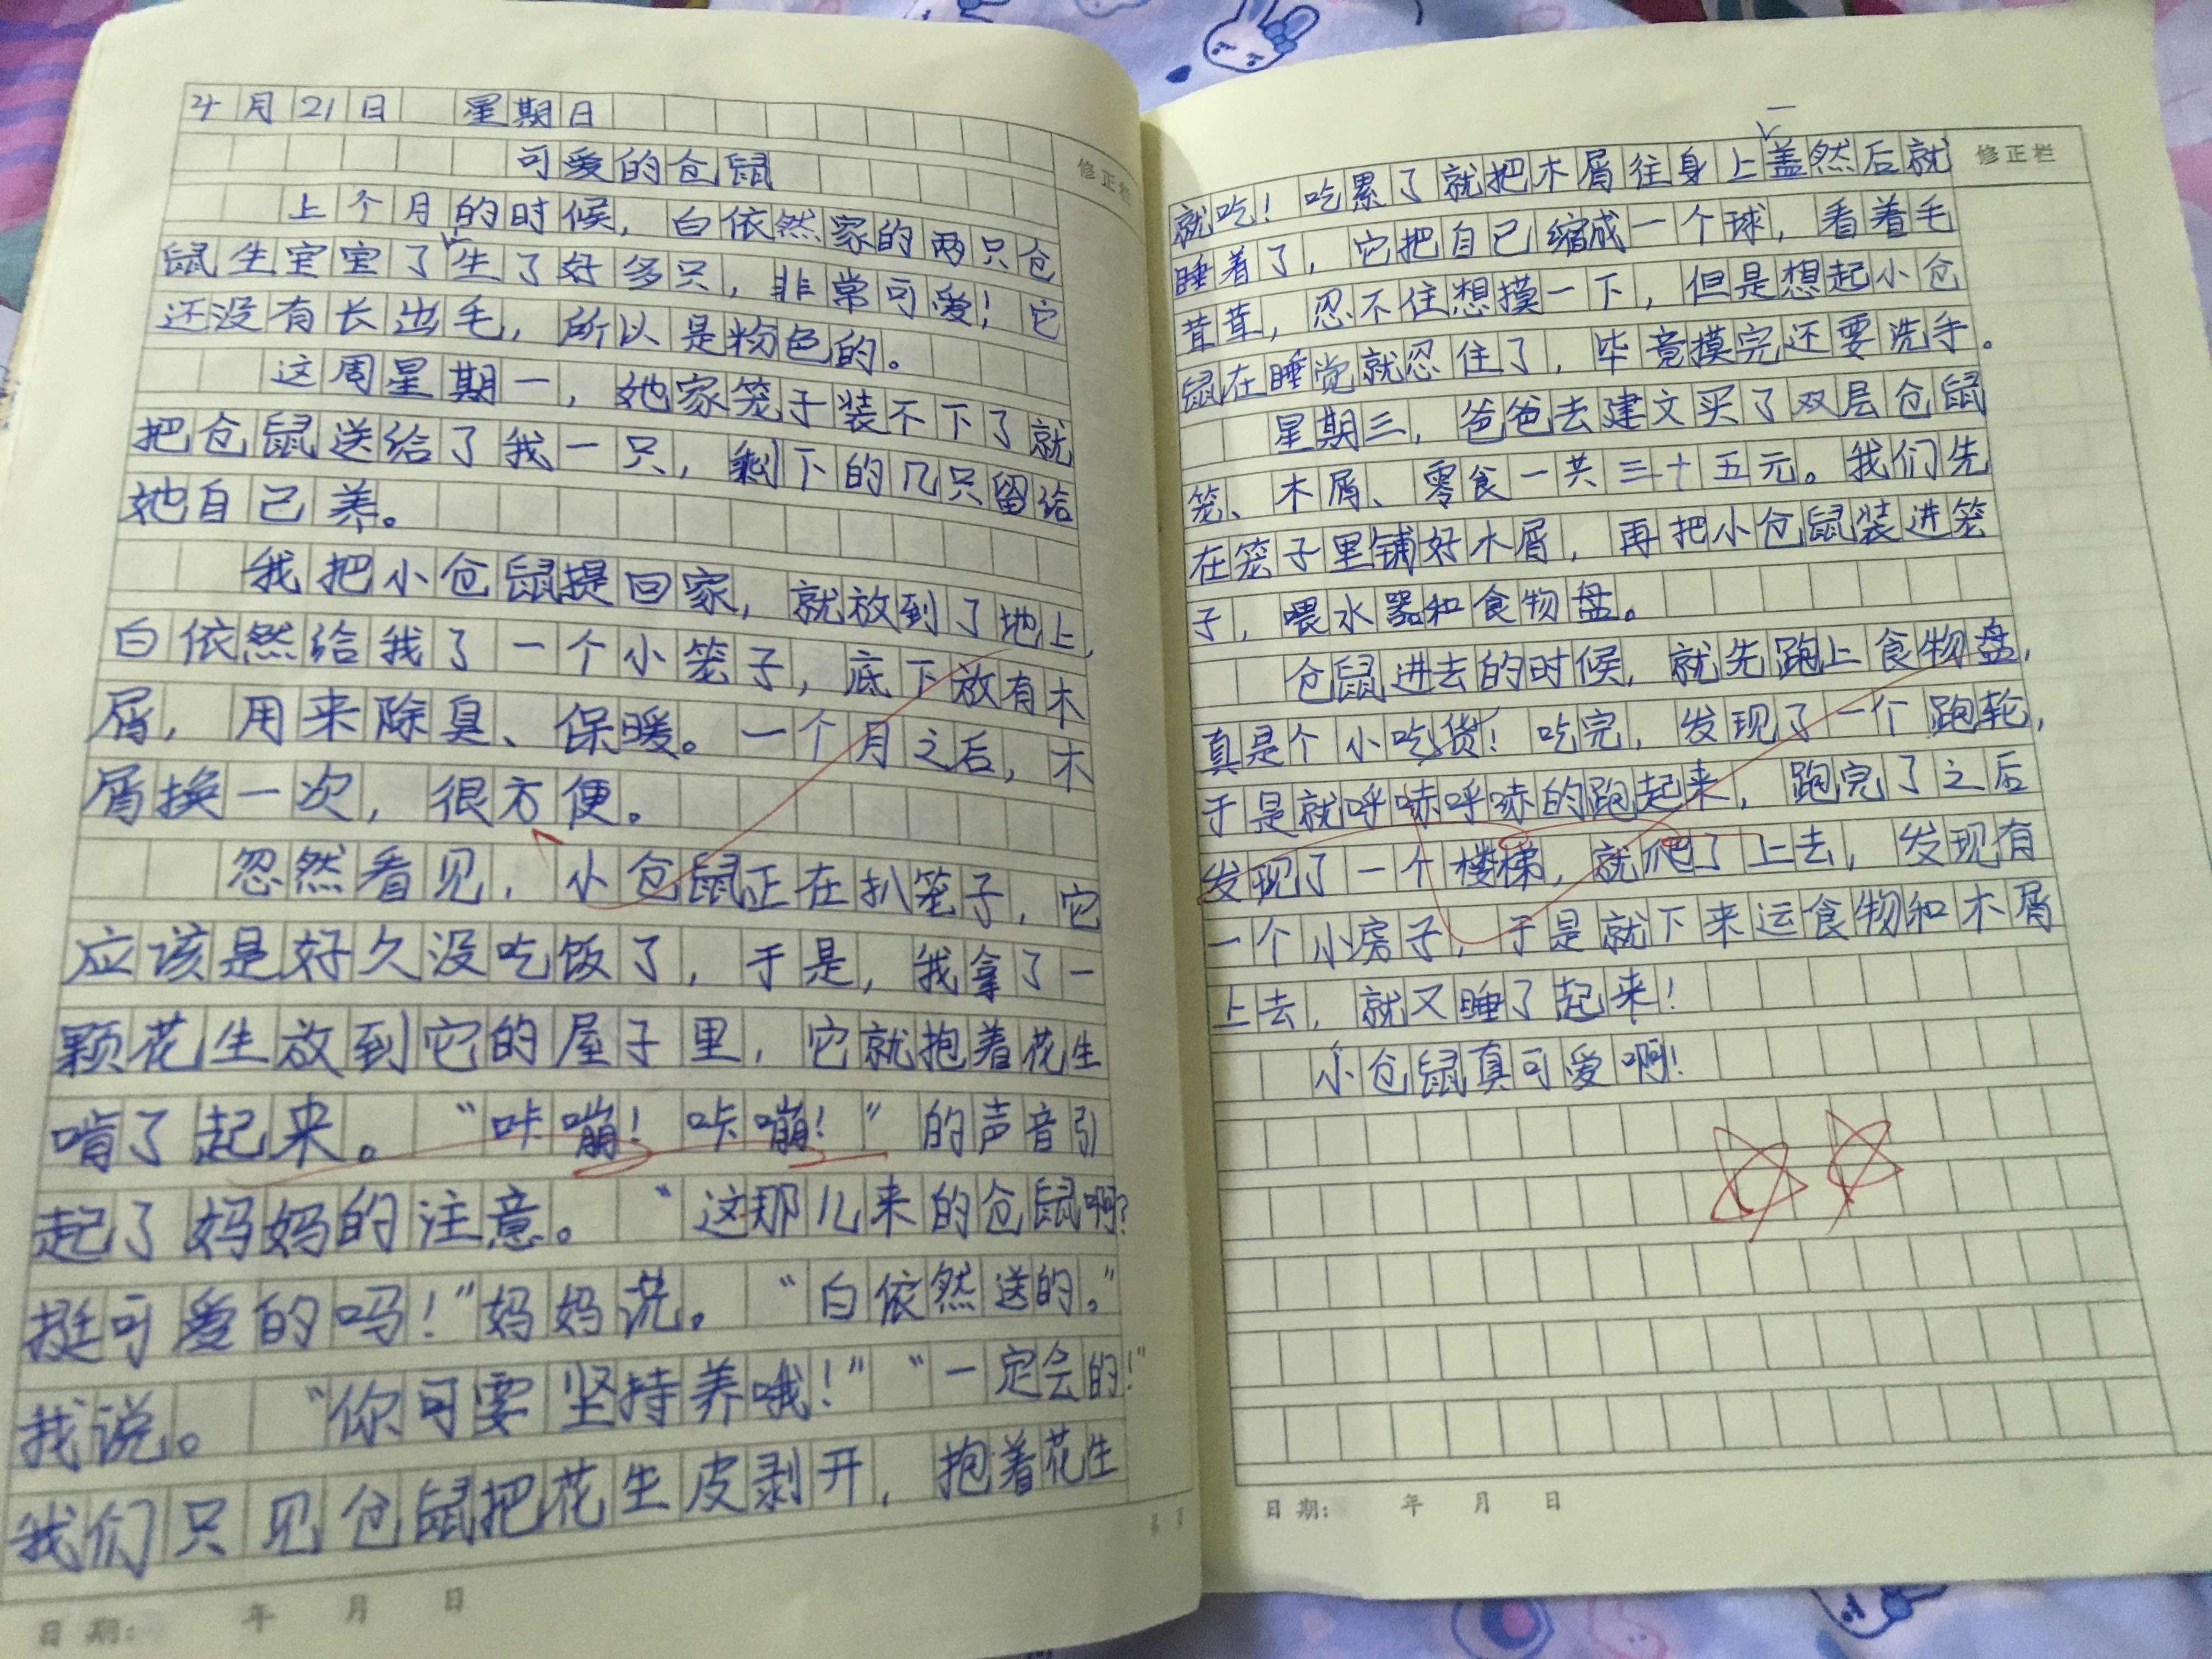 4月21日 星期日
可爱的仓鼠
修正栏
上个月的时候，白依然家的两只仓
鼠生宝宝了，生了好多只，非常可爱！它
还没有长出毛，所以是粉色的。
这周星期一，她家笼子装不下了就
把仓鼠送给了我一只，剩下的几只留给
她自己养。
我把小仓鼠提回家，就放到了地上，
白依然给我了一个小笼子，底下放有木
屑，用来除臭、保暖。一个月之后，木
屑换一次，很方便。
忽然看见，小仓鼠正在扒笼子，它
应该是好久没吃饭了，于是，我拿了一
颗花生放到它的屋子里，它就抱着花生
啃了起来。“咔嘣！咔嘣！”的声音引
起了妈妈的注意。“这那儿来的仓鼠啊？
挺可爱的吗！”妈妈说。“白依然送的。”
我说。“你可要坚持养哦！”“一定会的！”
我们只见仓鼠把花生皮剥开，抱着花生
日期： 年 月 日
修正栏
就吃！吃累了就把木屑往身上一盖然后就
睡着了，它把自己缩成一个球，看着毛
茸茸，忍不住想摸一下，但是想起小仓
鼠在睡觉就忍住了，毕竟摸完还要洗手。
星期三，爸爸去建文买了双层仓鼠
笼、木屑、零食一共三十五元。我们先
在笼子里铺好木屑，再把小仓鼠装进笼
子，喂水器和食物盘。
仓鼠进去的时候，就先跑上食物盘，
真是个小吃货！吃完，发现了一个跑轮，
于是就呼哧呼哧的跑起来，跑完了之后
发现了一个楼梯，就爬了上去，发现有
一个小房子，于是就下来运食物和木屑
上去，就又睡了起来！
小仓鼠真可爱啊！
日期： 年 月 日